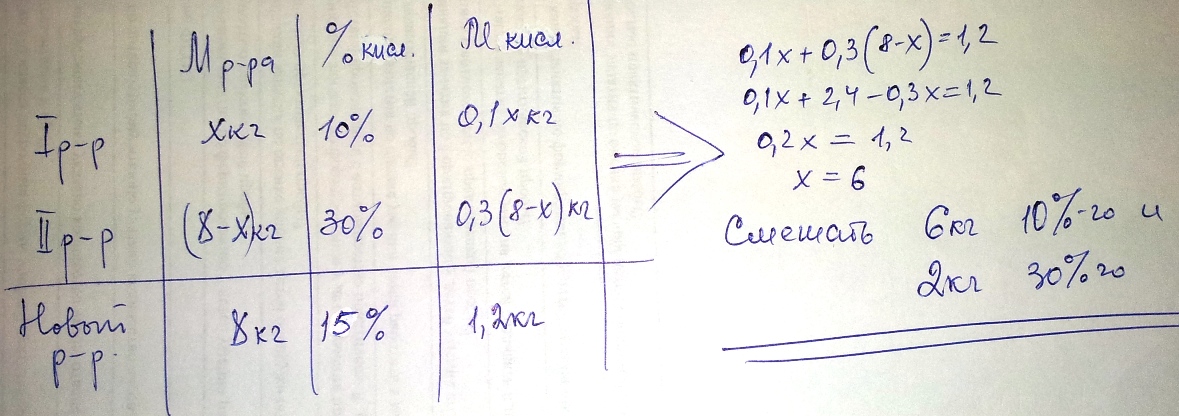 М р-ра % кисл. М кисл.
I р-р xкг 10% 0,1x кг
II р-р (8-x)кг 30% 0,3(8-x)кг
Новый 8кг 15% 1,2кг
р-р.
0,1x+0,3(8-x)=1,2
0,1x+2,4-0,3x=1,2
0,2x = 1,2
x = 6
Смешать 6кг 10%-го и
2кг 30%-го